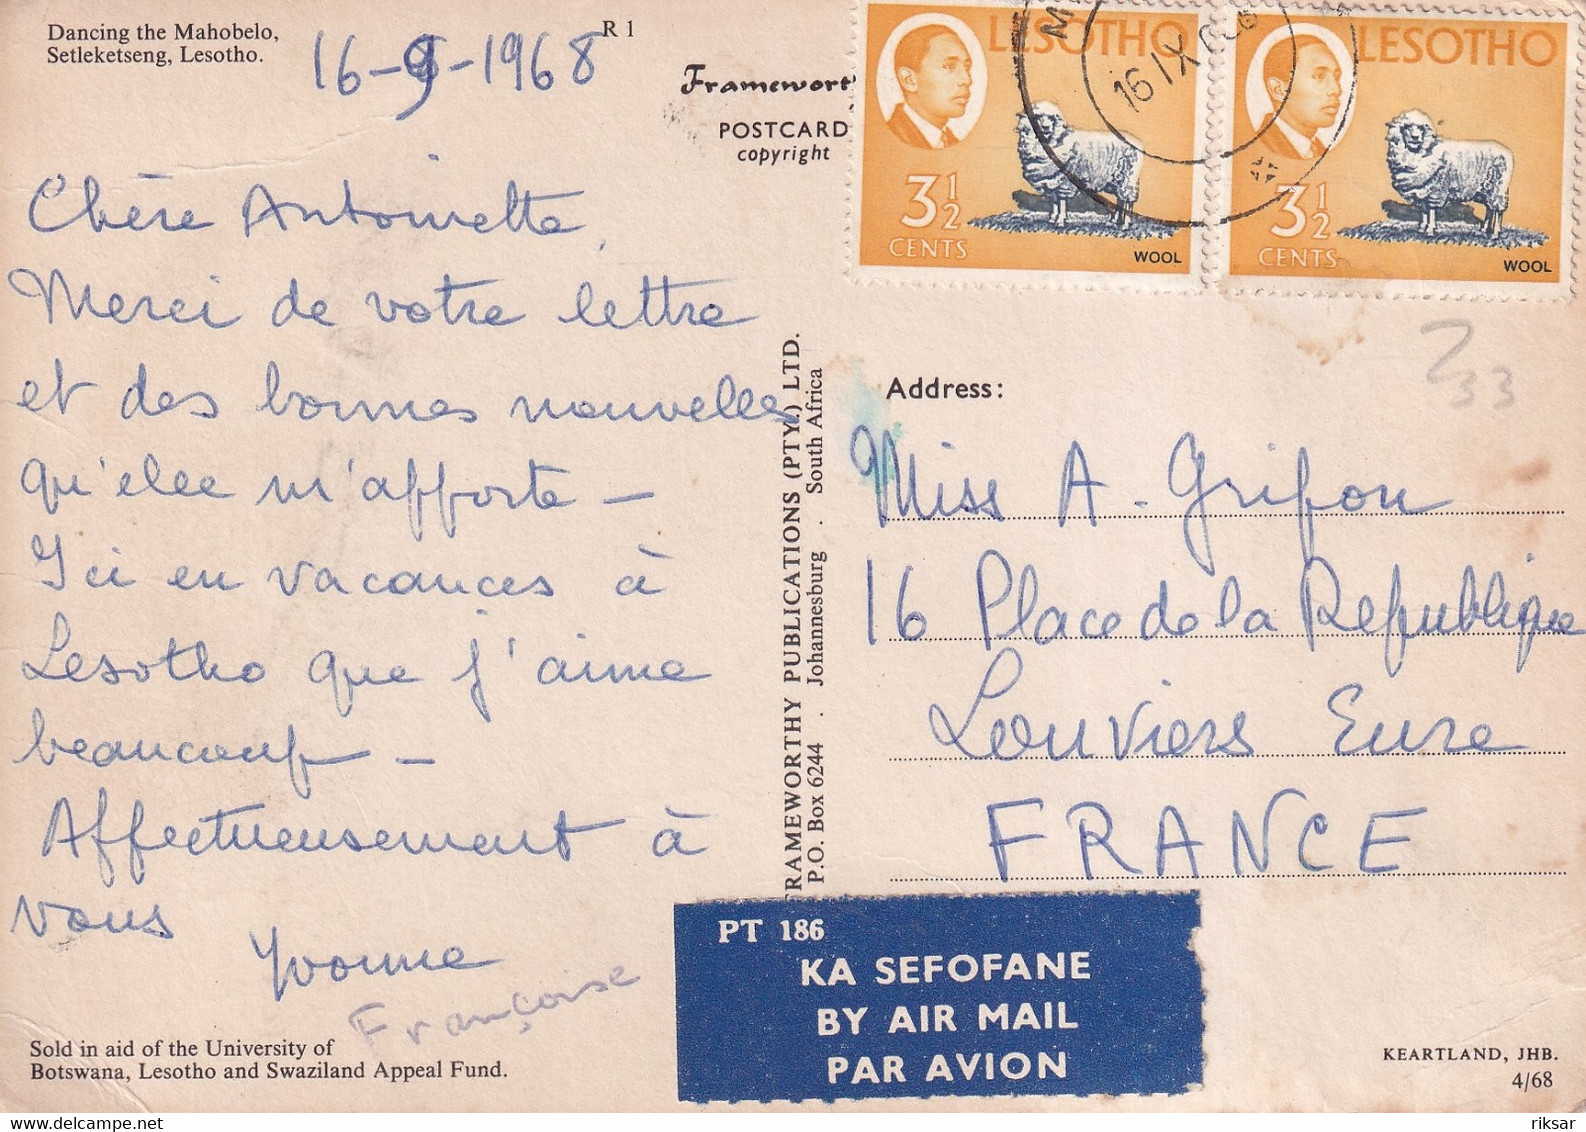 Dancing the Mahobelo,
Setleketseng, Lesotho.
16-9-1968
R 1
Frameworth
POSTCARD
copyright
LESOTHO
3½
CENTS
WOOL
16 IX
LESOTHO
3½
CENTS
WOOL
Chère Antoinette,
Merci de votre lettre
et des bonnes nouvelles
qu'elle m'apporte –
Ici en vacances à
Lesotho que j'aime
beaucoup –
Affectueusement à
vous
Yvonne
Françoise
Sold in aid of the University of
Botswana, Lesotho and Swaziland Appeal Fund.
FRAMEWORTHY PUBLICATIONS (PTY.) LTD.
P.O. Box 6244 . Johannesburg . South Africa
33
Address:
Miss A. Grifon
16 Place de la Republique
Louviers Eure
FRANCE
PT 186
KA SEFOFANE
BY AIR MAIL
PAR AVION
KEARTLAND, JHB.
4/68
riksar